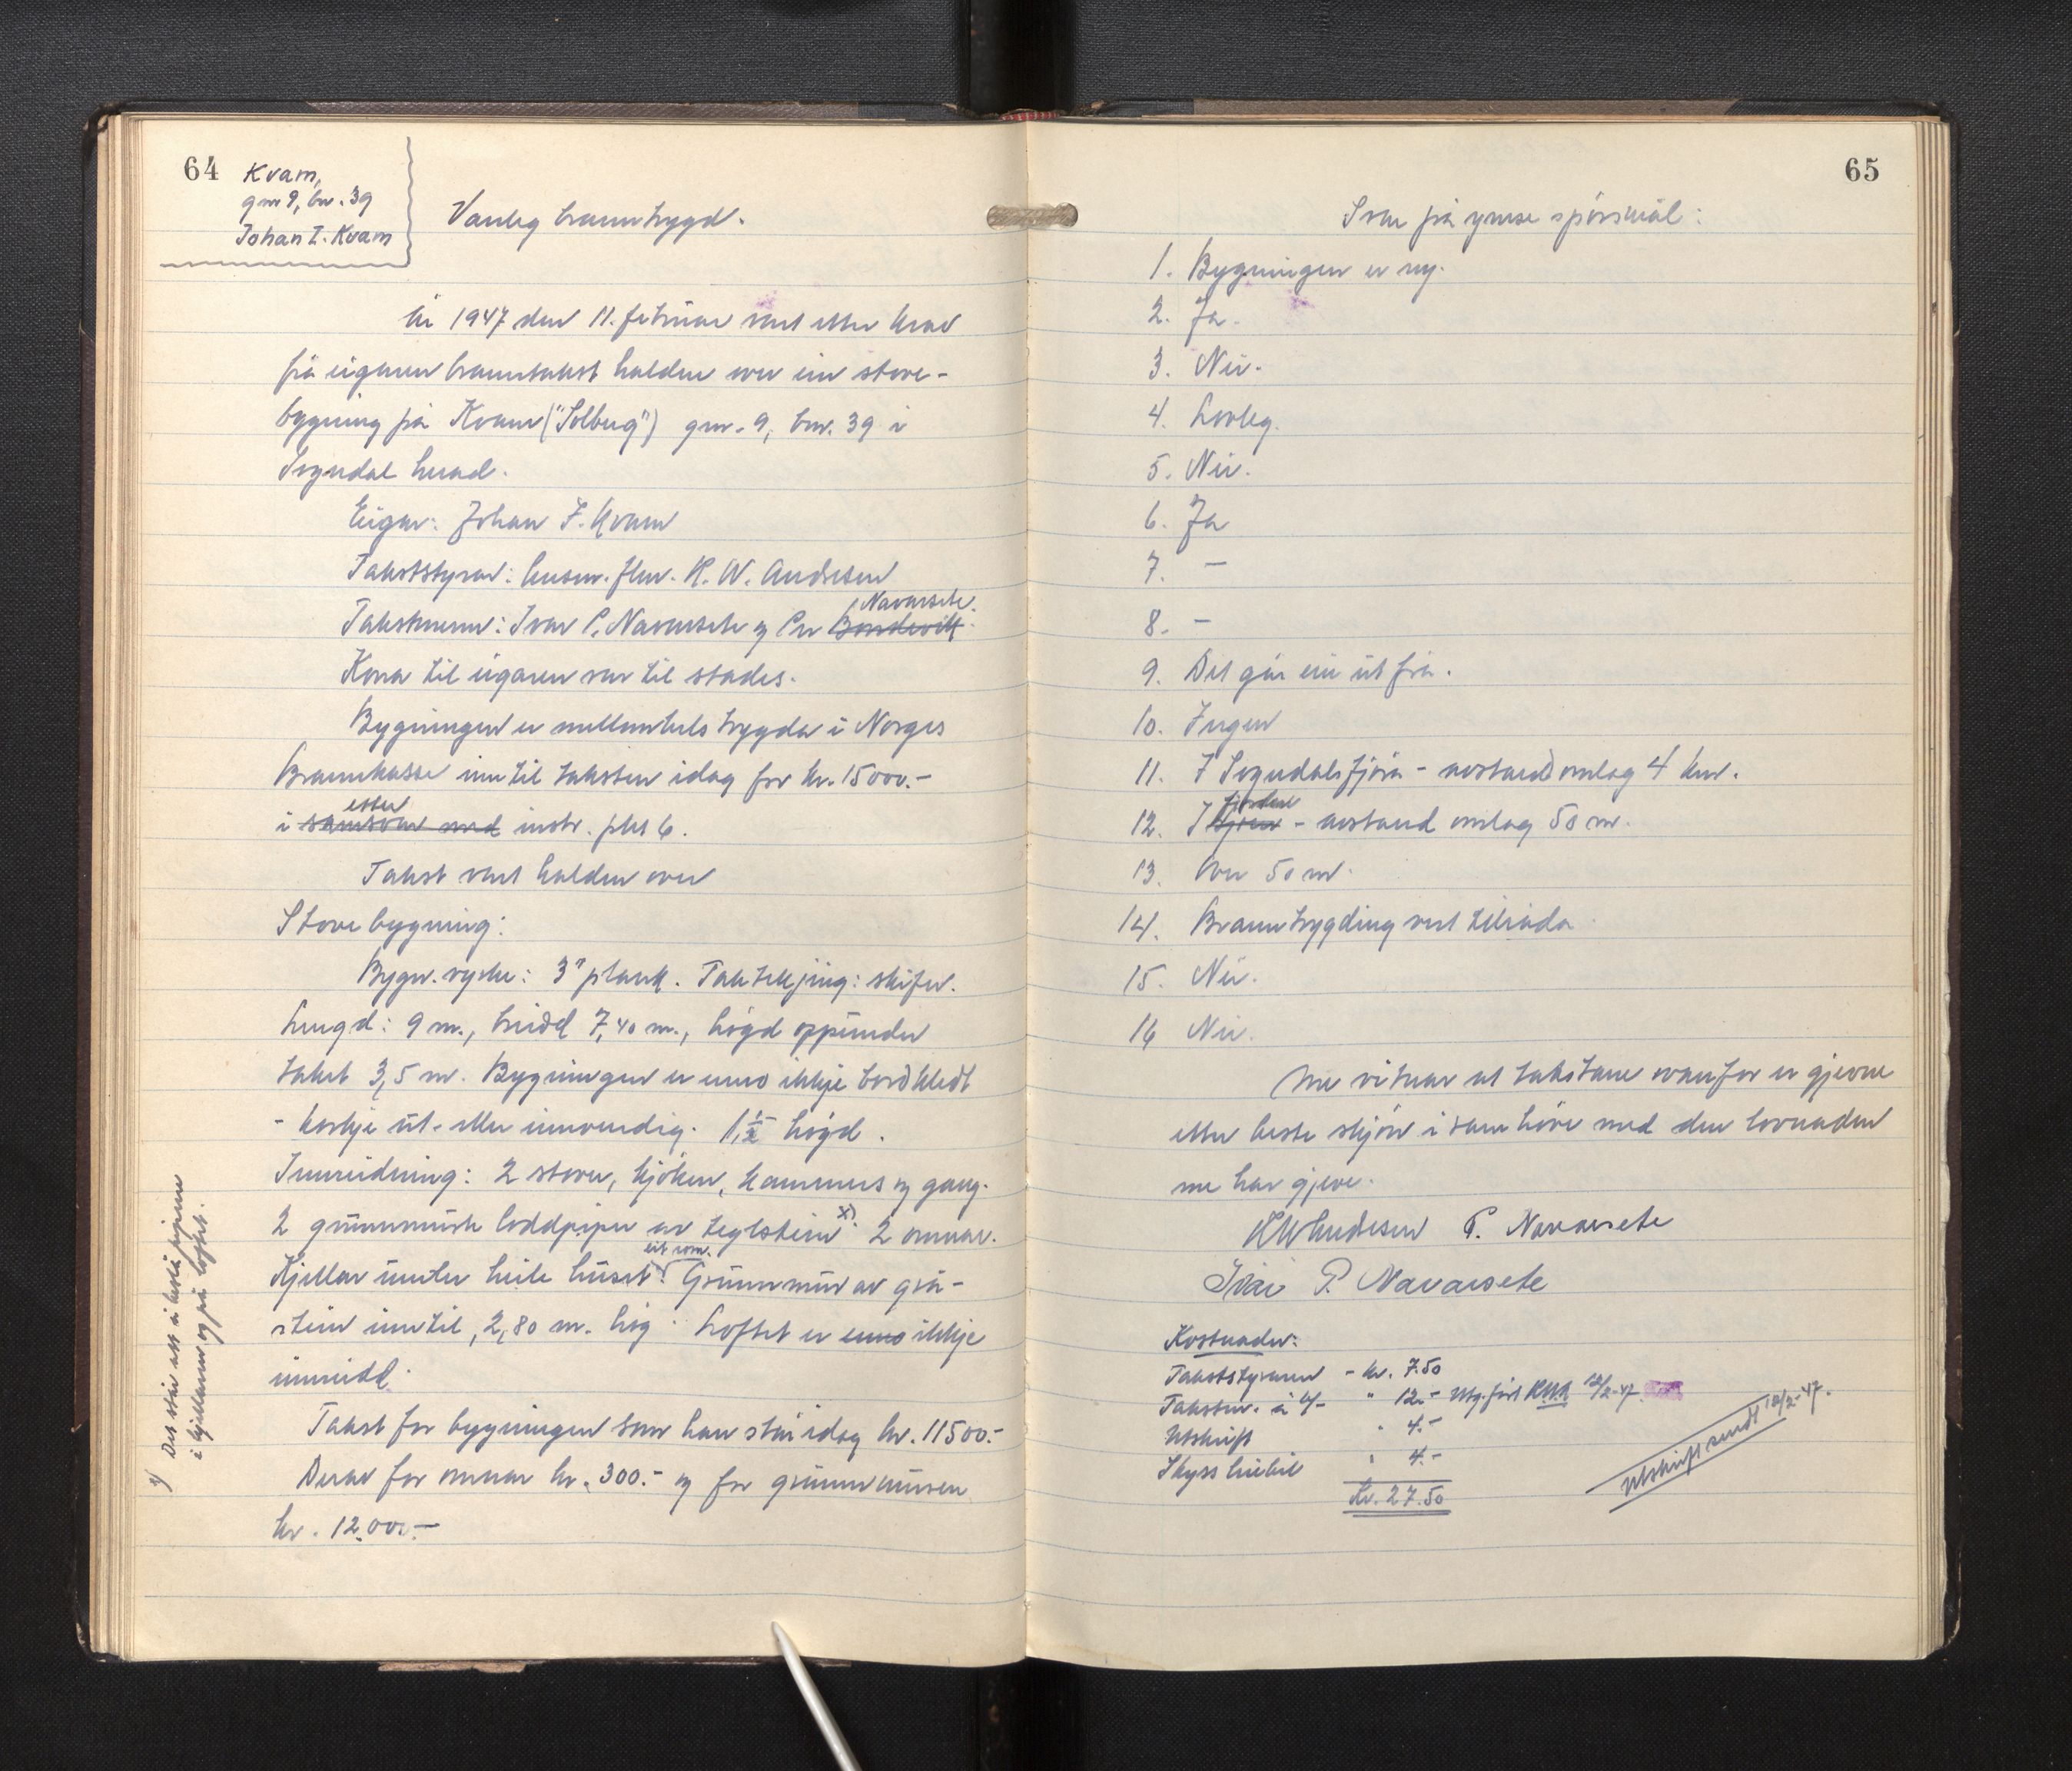 64
Kvam,
gnr 9, bnr. 39
Johan I. Kvam
Vanleg branntrygd.
År 1947 den 11. februar vart etter krav
frå eigaren branntakst halden over ein stove-
bygning på Kvam ("Solberg") gnr. 9, bnr. 39 i
Sogndal herad.
Eigar: Johan I. Kvam
Takststyrar: lensm. flm. K. W. Andresen
Navarsete.
Takstmenn: Ivar P. Navarsete og Per Bondevik
Kona til eigaren var til stades.
Bygningen er mellombels trygda i Norges
Brannkasse inntil taksten idag for kr. 15000.-
etter
i samsvar med instr. pkt 6.
Takst vart halden over
Stovebygning:
Bygn. vyrke: 3" plank. Taktekjing: skifer.
Lengd: 9 m., breidd 7,40 m., högd oppunder
taket 3,5 m. Bygningen er enno ikkje bordkledt
- korkje ut- eller innvendig. 1 1/2 högd.
Innreidning: 2 stover, kjöken, kammers og gang.
2 grunnmurte loddpiper av teglstein x). 2 omnar.
eit rom.
Kjellar under heile huset. Grunnmur av grå-
stein inntil 2,80 m. hög. Loftet er enno ikkje
innreidd.
Takst for bygningen som han står idag kr. 11500.-
Derav for omnar kr. 300.- og for grunnmuren
kr. 12.000.-
x) Det står att å kosta pipene
i kjellaren og på loftet.
65
Svar på ymse spörsmål:
1. Bygningen er ny.
2. Ja.
3. Nei.
4. Lovleg.
5. Nei.
6. Ja
7. -
8. -
9. Det går ein ut frå.
10. Ingen
11. I Sogndalsfjöra - avstand omlag 4 km.
fjorden
12. I sjöen - avstand omlag 50 m.
13. Over 50 m.
14. Branntrygding vert tilråda.
15. Nei.
16 Nei.
Me vitnar at takstane ovanfor er gjevne
etter beste skjön i samhöve med den lovnaden
me har gjeve.
KWAndresen P. Navarsete
Ivar P. Navarsete
Kostnader:
Takststyraren - kr. 7.50
Takstm. à 4/- " 12.- Utg. fört KWA 12/2-47
Utskrift " 4.-
Skyss leiebil " 4.-
Kr. 27.50
Utskrift sendt 12/2-47.